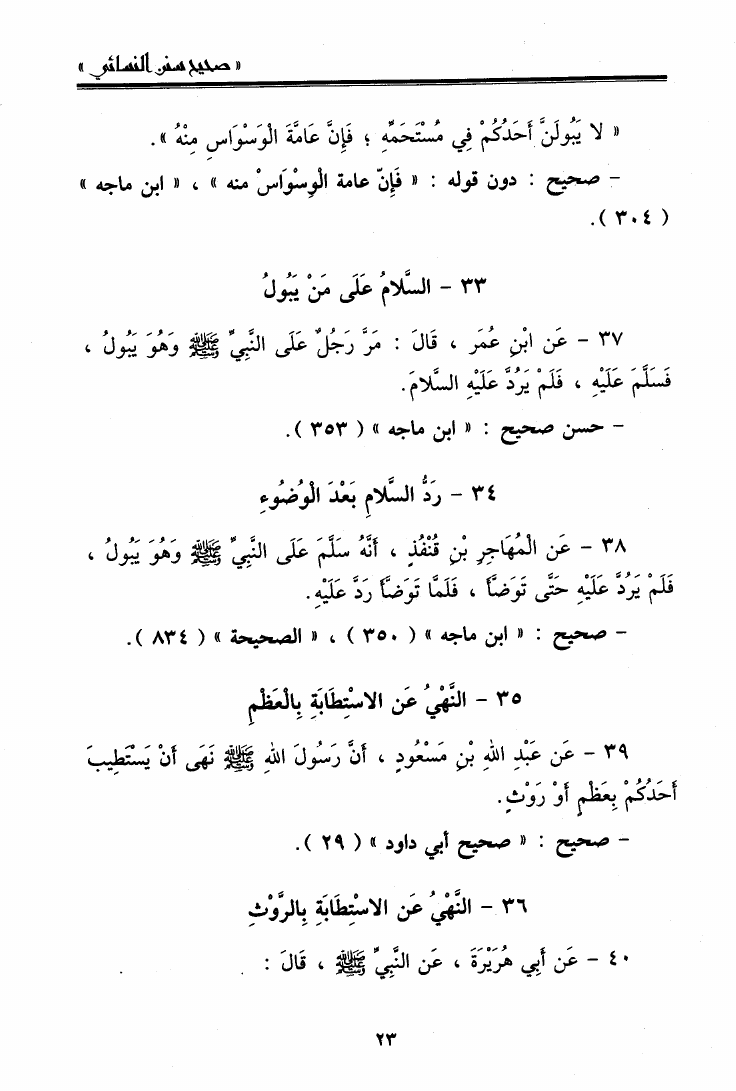 « صحيح سنن النسائي »
« لا يَبُولَنَّ أَحَدُكُمْ فِي مُسْتَحَمِّهِ ؛ فَإِنَّ عَامَّةَ الْوَسْوَاسِ مِنْهُ ».
– صحيح : دون قوله : « فَإِنّ عامة الْوِسْوَاسْ منه » ، « ابن ماجه »
( ٣٠٤ ).
٣٣ – السَّلامُ عَلَى مَنْ يَبُولُ
٣٧ – عَن ابْنِ عُمَر ، قَالَ : مَرَّ رَجُلٌ عَلَى النَّبِيِّ ﷺ وَهُوَ يَبُولُ ،
فَسَلَّمَ عَلَيْهِ ، فَلَمْ يَرُدَّ عَلَيْهِ السَّلامَ.
– حسن صحيح : « ابن ماجه » ( ٣٥٣ ).
٣٤ – رَدُّ السَّلامِ بَعْدَ الْوُضُوءِ
٣٨ – عَن الْمُهَاجِرِ بْنِ قُنْفُذٍ ، أَنَّهُ سَلَّمَ عَلَى النَّبِيِّ ﷺ وَهُوَ يَبُولُ ،
فَلَمْ يَرُدَّ عَلَيْهِ حَتَّى تَوَضَّأَ ، فَلَمَّا تَوَضَّأَ رَدَّ عَلَيْهِ.
– صحيح : « ابن ماجه » ( ٣٥٠ ) ، « الصحيحة » ( ٨٣٤ ).
٣٥ – النَّهْيُ عَن الاسْتِطَابَةِ بِالْعَظْمِ
٣٩ – عَن عَبْدِ اللهِ بْنِ مَسْعُودٍ ، أَنَّ رَسُولَ اللهِ ﷺ نَهَى أَنْ يَسْتَطِيبَ
أَحَدُكُمْ بِعَظْمٍ أَوْ رَوْثٍ.
– صحيح : « صحيح أبي داود » ( ٢٩ ).
٣٦ – النَّهْيُ عَن الاسْتِطَابَةِ بِالرَّوْثِ
٤٠ – عَن أَبِي هُرَيْرَةَ ، عَن النَّبِيِّ ﷺ ، قَالَ :
٢٣